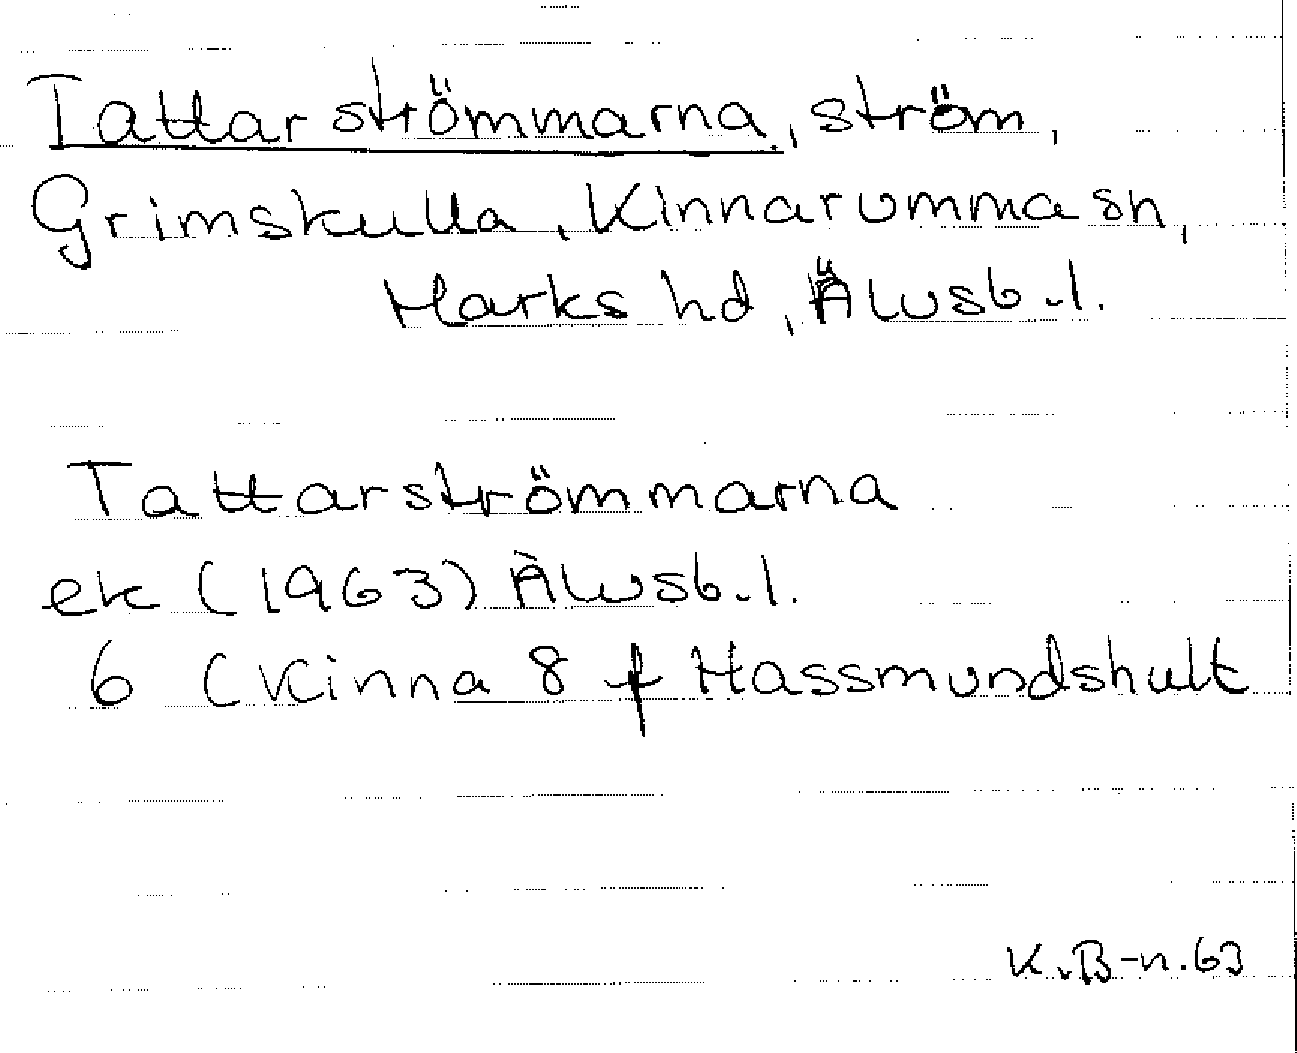 Tattarströmmarna, ström,
Grimskulla, Kinnarumma sn,
Marks hd, Älvsb.l.
Tattarströmmarna
ek (1963) Älvsb.l.
6 (Kinna 8 f Hassmundshult
K.B-n.63